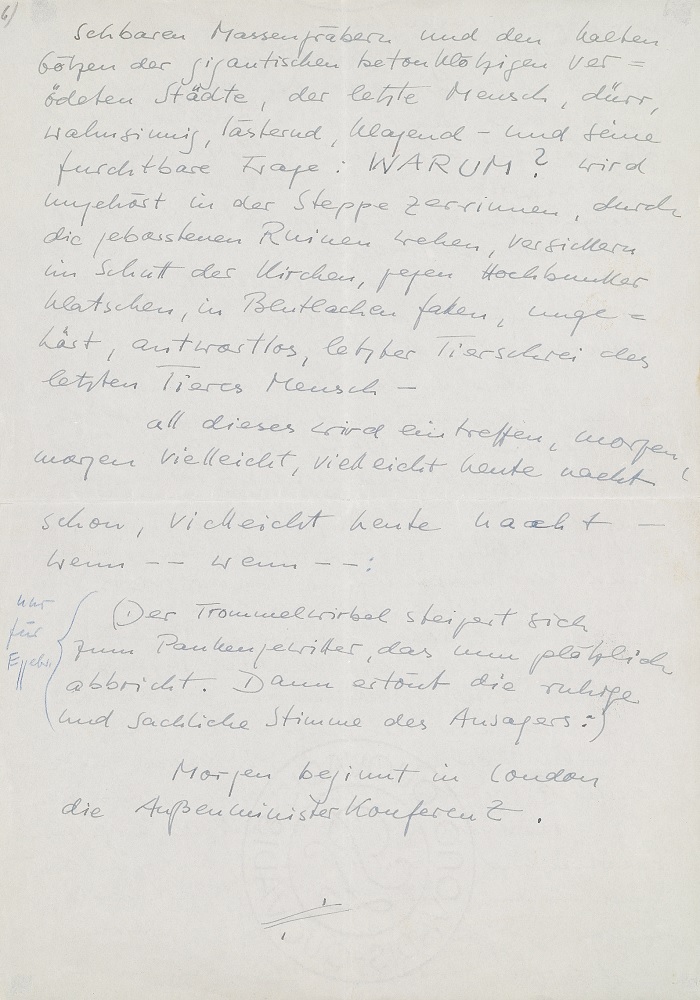 6)
sehbaren Massengräbern und den kalten
Götzen der gigantischen betonklötzigen ver =
ödeten Städte, der letzte Mensch, dürr,
wahnsinnig, lästernd, klagend – und seine
furchtbare Frage: WARUM? wird
ungehört in der Steppe zerrinnen, durch
die geborstenen Ruinen wehen, versickern
im Schutt der Kirchen, gegen Hochbunker
klatschen, in Blutlachen fallen, unge =
hört, antwortlos, letzter Tierschrei des
letzten Tieres Mensch –
all dieses wird eintreffen, morgen,
morgen vielleicht, vielleicht heute nacht
schon, vielleicht heute nacht –
wenn –– wenn ––:
nur
für
(Der Trommelwirbel steigert sich
zum Paukengewitter, das nun plötzlich
abbricht. Dann ertönt die ruhige
und sachliche Stimme des Ansagers:)
Morgen beginnt in London
die Außenministerkonferenz.